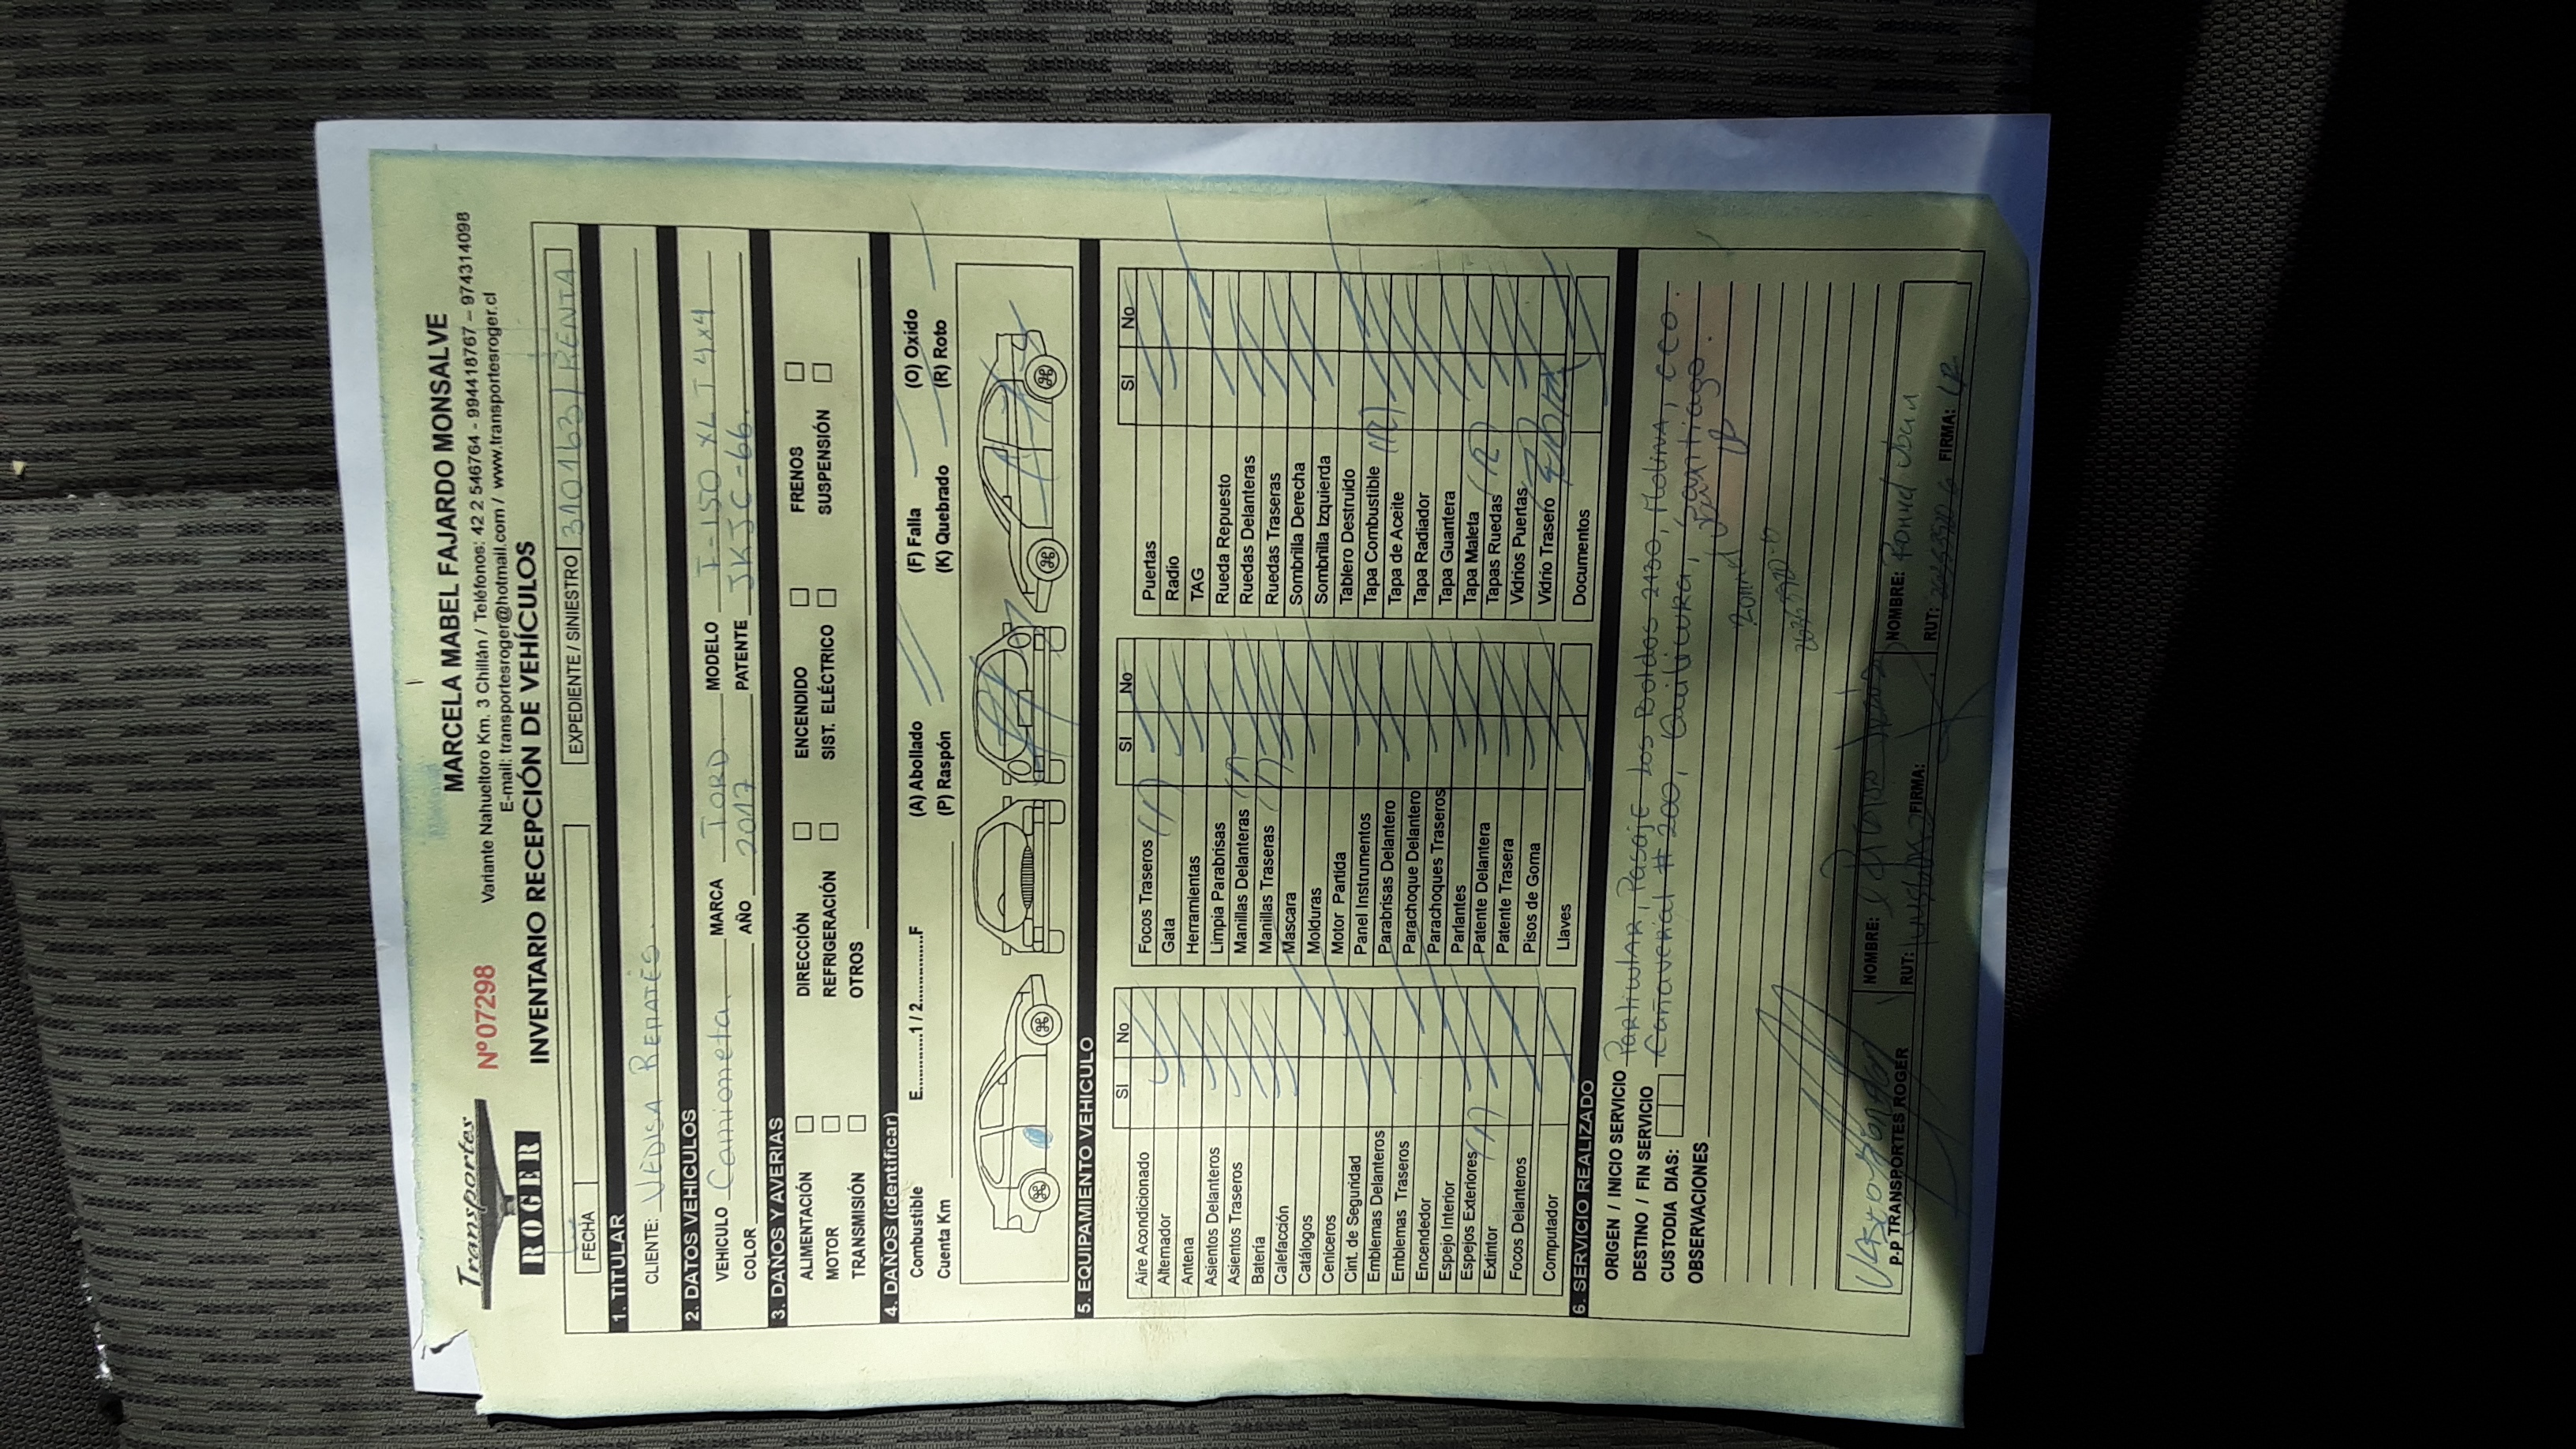 Transportes
ROGER
Nº07298
MARCELA MABEL FAJARDO MONSALVE
Variante Nahueltoro Km. 3 Chillán / Teléfonos: 42 2 546764 - 994418767 – 974314098
E-mail: transportesroger@hotmail.com / www.transportesroger.cl
INVENTARIO RECEPCIÓN DE VEHÍCULOS
FECHA
EXPEDIENTE / SINIESTRO 310163/RENTA
1. TITULAR
CLIENTE: VENDSA REMATES.
2. DATOS VEHICULOS
VEHICULO Camioneta MARCA FORD MODELO F-150 XLT 4x4
COLOR AÑO 2017 PATENTE JKJC-66.
3. DAÑOS Y AVERIAS
ALIMENTACIÓN DIRECCIÓN ENCENDIDO FRENOS
MOTOR REFRIGERACIÓN SIST. ELÉCTRICO SUSPENSIÓN
TRANSMISIÓN OTROS
4. DAÑOS (identificar)
Combustible E............1 / 2..............F (A) Abollado (F) Falla (O) Oxido
Cuenta Km (P) Raspón (K) Quebrado (R) Roto
5. EQUIPAMIENTO VEHICULO
SI No
Aire Acondicionado
Alternador
Antena
Asientos Delanteros
Asientos Traseros
Batería
Calefacción
Catálogos
Ceniceros
Cint. de Seguridad
Emblemas Delanteros
Emblemas Traseros
Encendedor
Espejo Interior
Espejos Exteriores
Extintor
Focos Delanteros
Computador
SI No
Focos Traseros
Gata
Herramientas
Limpia Parabrisas
Manillas Delanteras
Manillas Traseras
Mascara
Molduras
Motor Partida
Panel Instrumentos
Parabrisas Delantero
Parachoque Delantero
Parachoques Traseros
Parlantes
Patente Delantera
Patente Trasera
Pisos de Goma
Llaves
SI No
Puertas
Radio
TAG
Rueda Repuesto
Ruedas Delanteras
Ruedas Traseras
Sombrilla Derecha
Sombrilla Izquierda
Tablero Destruido
Tapa Combustible (R)
Tapa de Aceite
Tapa Radiador
Tapa Guantera
Tapa Maleta
Tapas Ruedas (R)
Vidrios Puertas
Vidrio Trasero
Documentos
6. SERVICIO REALIZADO
ORIGEN / INICIO SERVICIO Particular, Pasaje Los Boldos 2130, Molina, CCO.
DESTINO / FIN SERVICIO Cañaveral # 200, Quilicura, Santiago.
CUSTODIA DIAS:
OBSERVACIONES
P.P TRANSPORTES ROGER
NOMBRE:
RUT: FIRMA:
NOMBRE:
RUT: FIRMA: